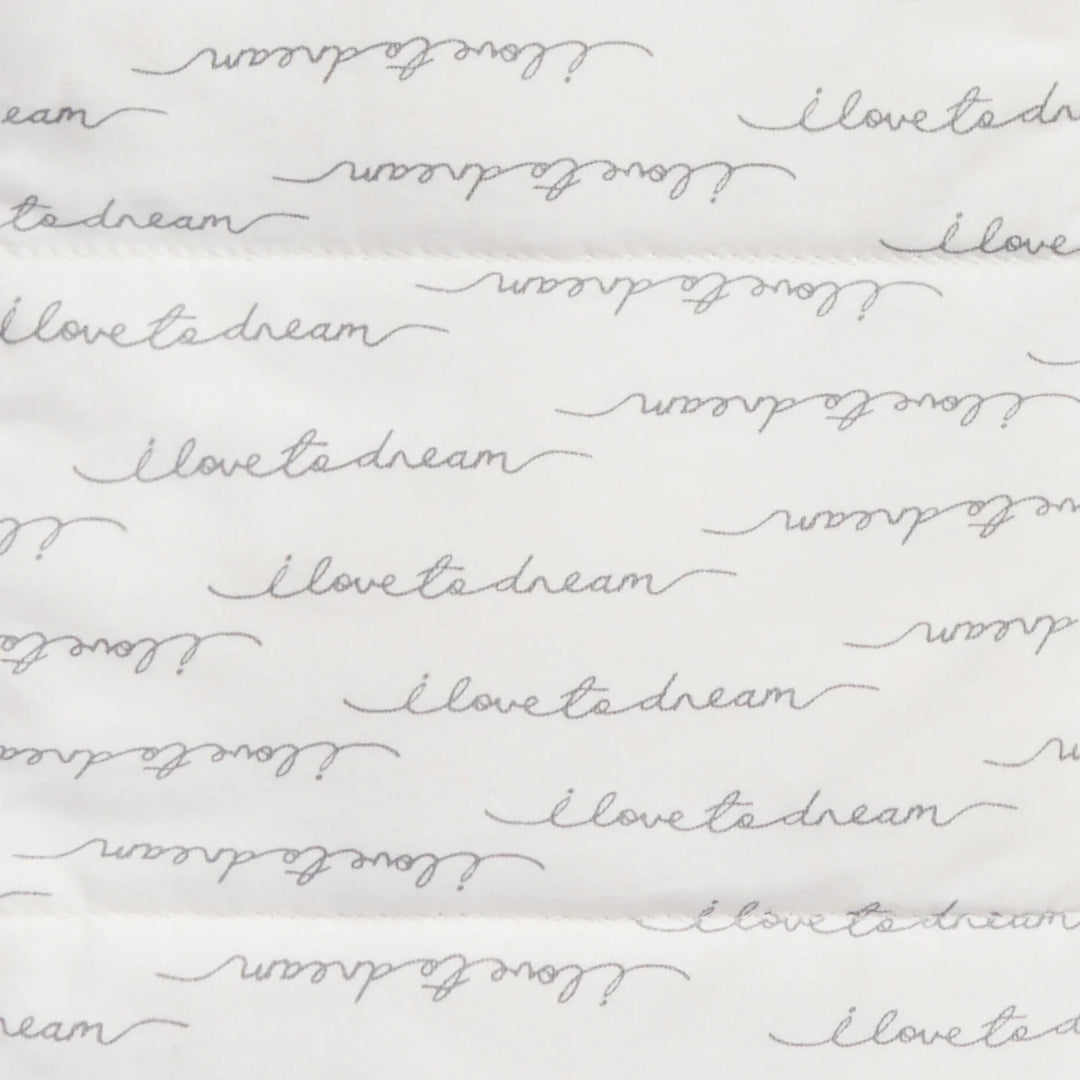 i love to dream
eam
i love to dr
i love to dream
to dream
i love
i love to dream
i love to dream
i love to dream
i love to dream
ve to dream
i l
i love to dream
dream
love to
i love to dream
m
i love to drea
i love to dream
i love to dream
i love to dream
i love to dream
ream
i love to d